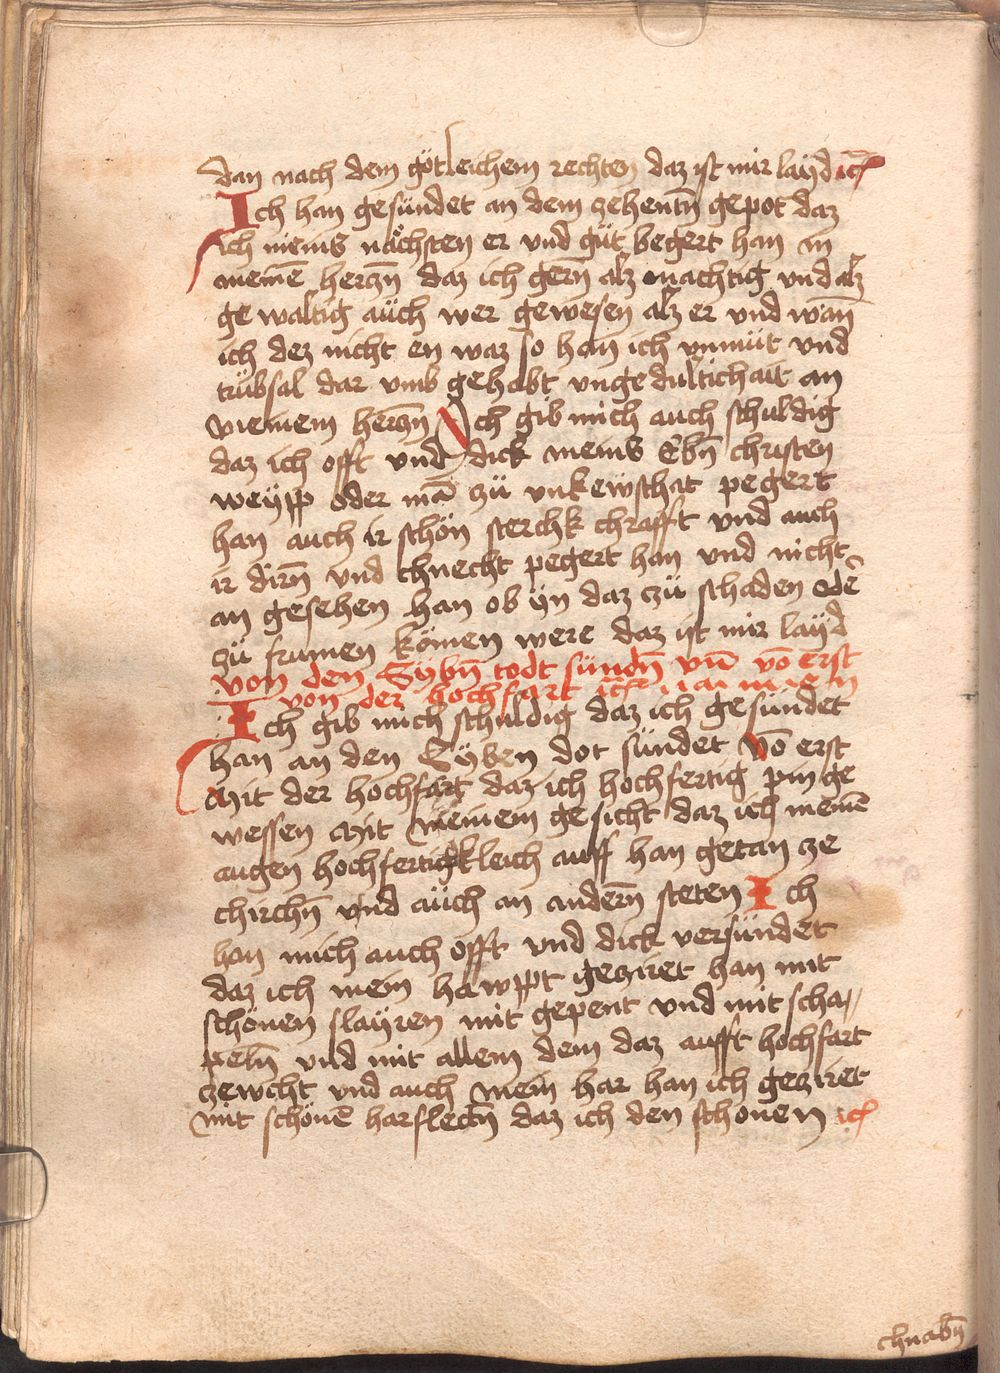 dan nach dem götleichem rechten daz ist mir layd ich
Ich han gesündet an dem zehentn̄ gepot daz
ich meins nächsten er vnd güt begert han in
meinē herczn̄ daz ich gern̄ alz mächtig vnd alz
gewaltig aüch wer gewesen alz er vnd wan̄
ich dez nicht en waz so han ich vnmüt vnd
trübsal dar vmb gehabt vngedultichait an
meinem herczn̄ Ich gib mich auch schuldig
daz ich offt vnd dick meins Ebn̄ christen
weypp oder mā zü vnkewschat pegert
han auch ir schön sterchk chrafft vnd auch
ir dirn̄ vnd chnecht pegert han vnd nicht
an gesehen han ob yn daz zü schaden odē
zü frumen kömen were daz ist mir layd
von den Sybn̄ todt sündn̄ vn̄ vō erst
von der hochfart
Ich gib mich schuldig daz ich gesündet
han an den Syben dot sündet vō erst
Mit der hochfart daz ich hochfertig pin ge
wessen Mit meinem gesicht daz ich meinē
augen hochfertigkleich auff han getan ze
chirchn̄ vnd aüch an andern̄ steten Ich
han mich auch offt vnd dick versündet
daz ich mein hawppt gecziret han mit
schönen slayren mit gepent vnd mit scha//
peln̄ vnd mit allem dem daz aufft hochfart
zewcht vnd auch mein har han ich gecziret
mit schönē harflectn̄ daz ich den schonen ich
chnabn̄